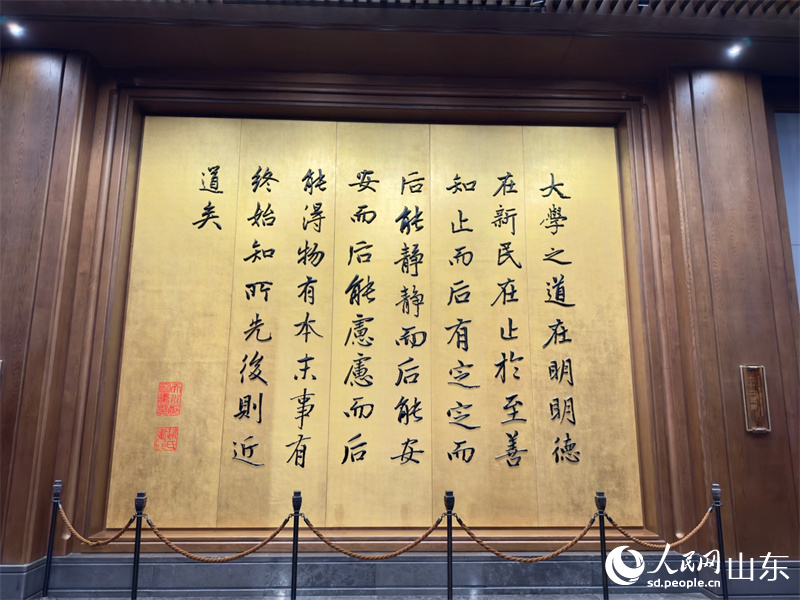 大學之道在明明德
在新民在止於至善
知止而后有定定而
后能静静而后能安
安而后能慮慮而后
能得物有本末事有
終始知所先後則近
道矣
人民网 山东
sd.people.cn